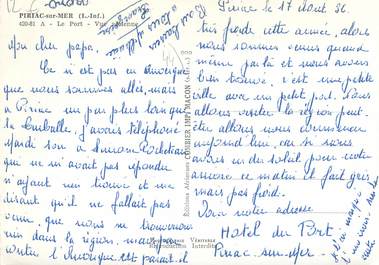 PIRIAC-sur-MER (L.-Inf.)
420-81 A - Le Port - Vue aérienne
Mon cher papa.
Ce n'est pas en Auvergne
que nous sommes allés, mais
à Piriac un peu plus loin que
la Turballe. J'avais téléphoné
Mardi soir à Simone Rocheteau
qui ne m'avait pas répondu
n'ayant rien trouvé et me
disant qu'il ne fallait pas
venir, que nous ne trouverions
rien dans la région, mais
contre l'Auvergne est parait-il
Bons baisers
à toute
Éditions Aériennes COMBIER IMP. MACON
Photographie Véritable
Reproduction Interdite
Piriac le 17 Août 56.
très froide cette année, alors
nous sommes venus quand
même parti et nous avons
bien trouvé, c'est une petite
ville avec un petit port. Nous
allons visiter la région peut-
être allons nous commencer
aujourd'hui car si nous
avons eu du soleil pour notre
arrivée ce matin il fait gris
mais pas froid.
Voici notre adresse
Hôtel du Port.
Piriac-sur-Mer.